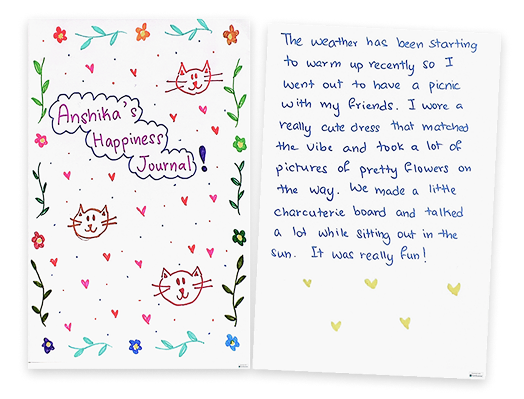 Anshika's
Happiness
Journal!
The weather has been starting
to warm up recently so I
went out to have a picnic
with my friends. I wore a
really cute dress that matched
the vibe and took a lot of
pictures of pretty flowers on
the way. We made a little
charcuterie board and talked
a lot while sitting out in the
sun. It was really fun!